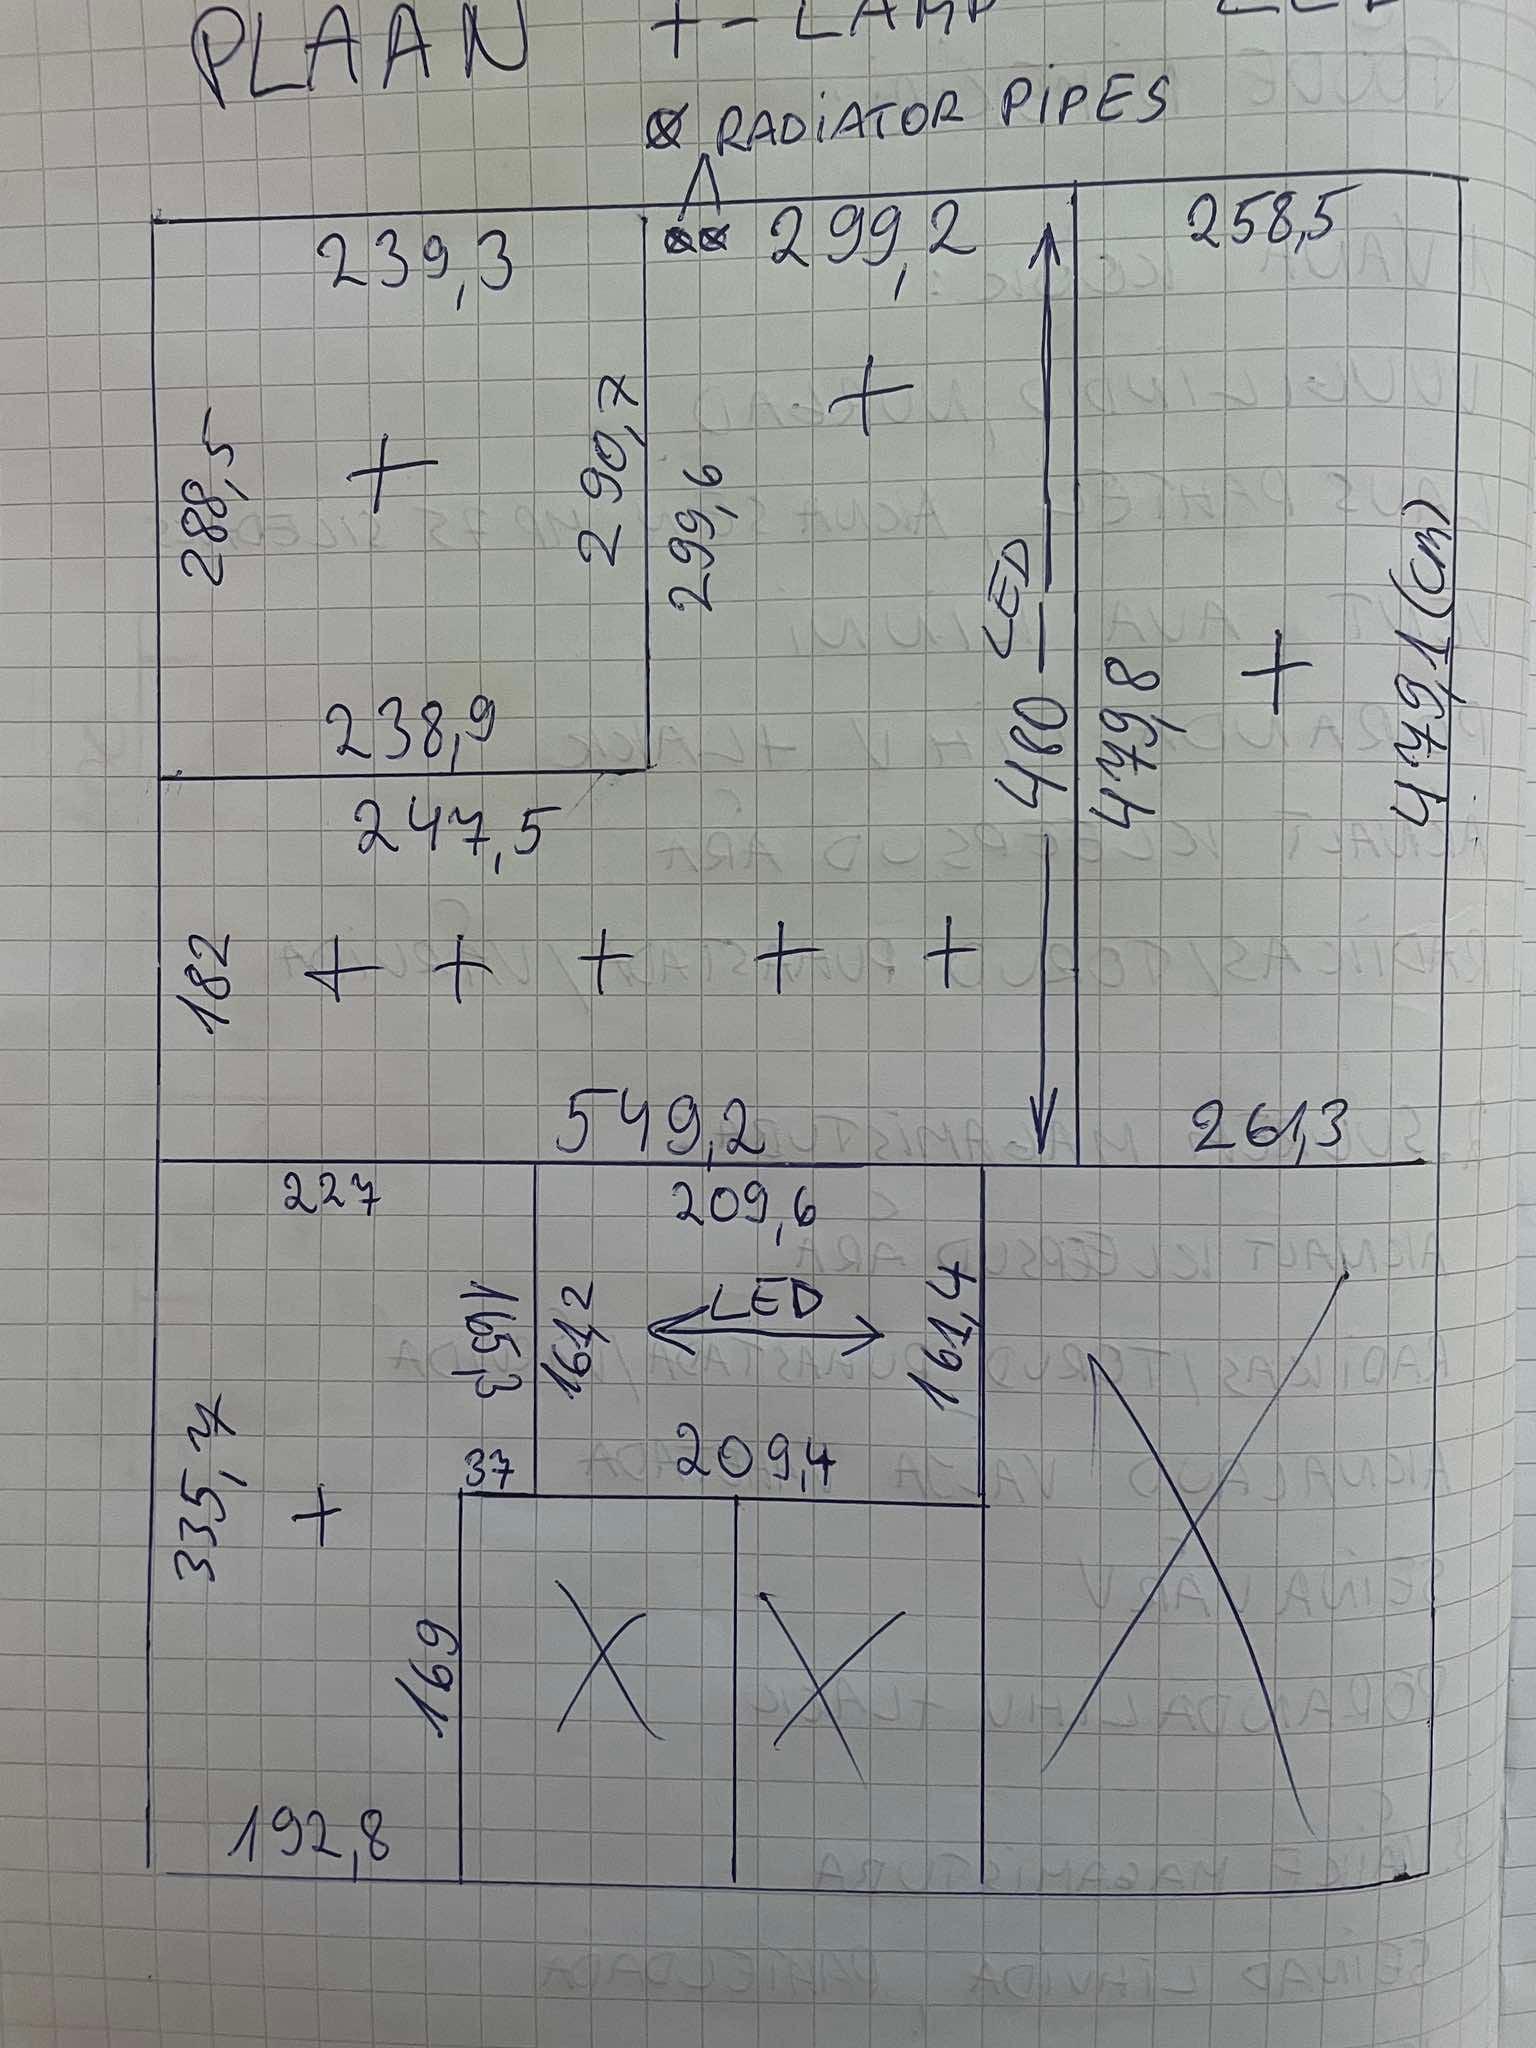 PLAAN + - LAMP LED
⊗ RADIATOR PIPES
239,3
299,2
258,5
288,5
290,7
299,6
LED
480
479,8
479,1 (cm)
238,9
247,5
182
549,2
261,3
227
209,6
165,3
161,2
LED
161,4
37
209,4
335,7
169
192,8